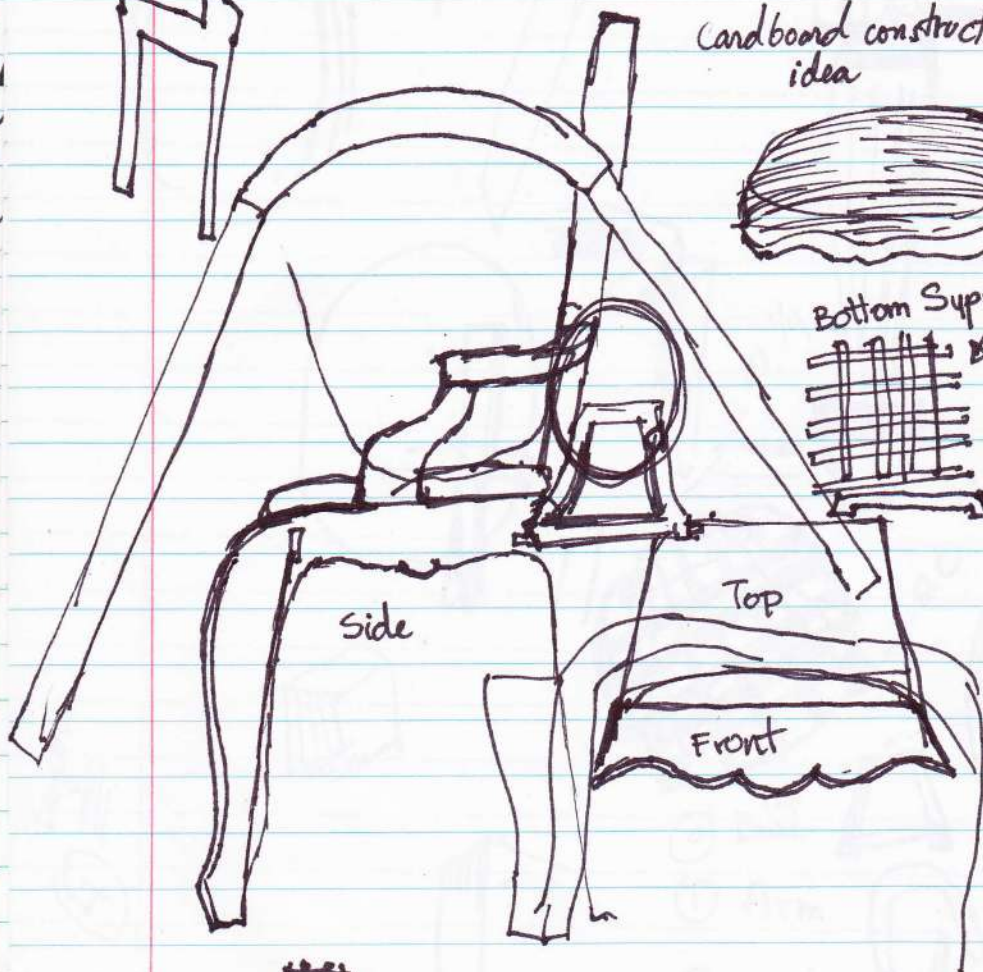 Cardboard construct
idea
Bottom Sup
Side
Top
Front